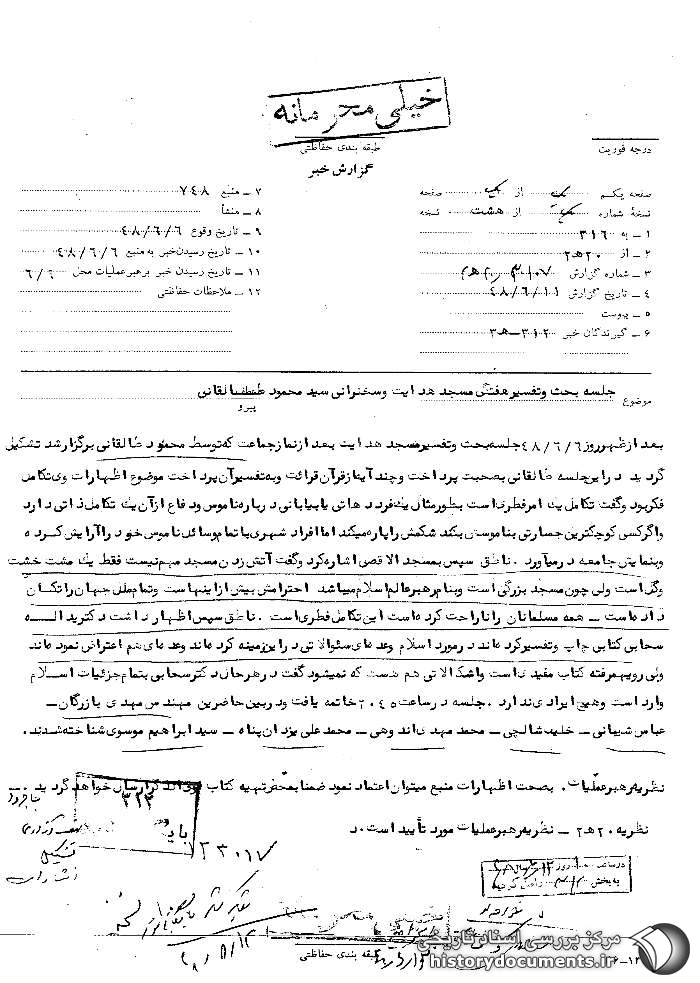 خیلی محرمانه
طبقه بندی حفاظتی
درجه فوریت
گزارش خبر
صفحه یکم از یک صفحه
نسخهٔ شماره از هشت نسخه
۱ ـ به ۳۱۶
۲ ـ از ۲۰هـ۲
۳ ـ شماره گزارش
۴ ـ تاریخ گزارش ۴۸/۶/۱۱
۵ ـ پیوست
۶ ـ گیرندگان خبر ۳۱۲ـ۳هـ
۷ ـ منبع ۷۴۸
۸ ـ منشأ
۹ ـ تاریخ وقوع ۴۸/۶/۶
۱۰ ـ تاریخ رسیدن خبر به منبع ۴۸/۶/۶
۱۱ ـ تاریخ رسیدن خبر برهبر عملیات محل ۶/۶
۱۲ ـ ملاحظات حفاظتی
موضوع جلسه بحث وتفسیرهفتگی مسجد هدایت وسخنرانی سید محمود طالقانی
پیرو
بعد ازظهرروز ۴۸/۶/۶ جلسه بحث وتفسیرمسجد هدایت بعد ازنمازجماعت که توسط محمود طالقانی برگزارشد تشکیل
گردید دراین جلسه طالقانی بصحبت پرداخت وچند آیه ازقرآن قرائت وبه تفسیرآن پرداخت موضوع اظهارات وی تکامل
فکربود وگفت تکامل یك امرفطری است بطورمثال یك فرد دهاتی یا بیابانی درباره ناموس ودفاع ازآن یك تکامل ذاتی دارد
واگرکسی کوچکترین جسارتی بناموسش بکند شکمش راپاره میکند اما افراد شهری باتمام وسائل ناموس خود راآرایش کرده
وبنمایش جامعه درمیآورد . ناطق سپس بمسجد الاقصی اشاره کرد وگفت آتش زدن مسجد مهم نیست فقط یك مشت خشت
وگل است ولی چون مسجد بزرگی است وبنام رهبرعالم اسلام میباشد احترامش بیش ازاینهاست وتمام ملل جهان راتکان
داده است ـ همه مسلمانان راناراحت کرده است این تکامل فطری است . ناطق سپس اظهارداشت دکترید الــــه
سحابی کتابی چاپ وتفسیرکرده اند درمورد اسلام وعده ای سئوالاتی دراین زمینه کرده اند وعده ای هم اعتراض نموده اند
ولی رویهمرفته کتاب مفیدی است واشکالاتی هم هست که نمیشود گفت درهرحال دکترسحابی بتمام جزئیات اسلام
وارد است وهیچ ایرادی ندارد . جلسه درساعت ۲۰۴۵ خاتمه یافت ودربین حاضرین مهندس مهدی بازرگان ـ
عباس شیبانی ـ خلیل شالچی ـ محمد مهدی اندوهی ـ محمد علی یزدان پناه ـ سید ابراهیم موسوی شناخته شدند .
نظریه رهبرعملیات . بصحت اظهارات منبع میتوان اعتماد نمود ضمنا بمحض تهیه کتاب ارسال خواهد گردید .
نظریه ۲۰هـ۲ ـ نظریه رهبرعملیات مورد تأیید است . د
۳۲۳
۲۳۰۱۷
طبقه بندی حفاظتی
مرکز بررسی اسناد تاریخی
historydocuments.ir